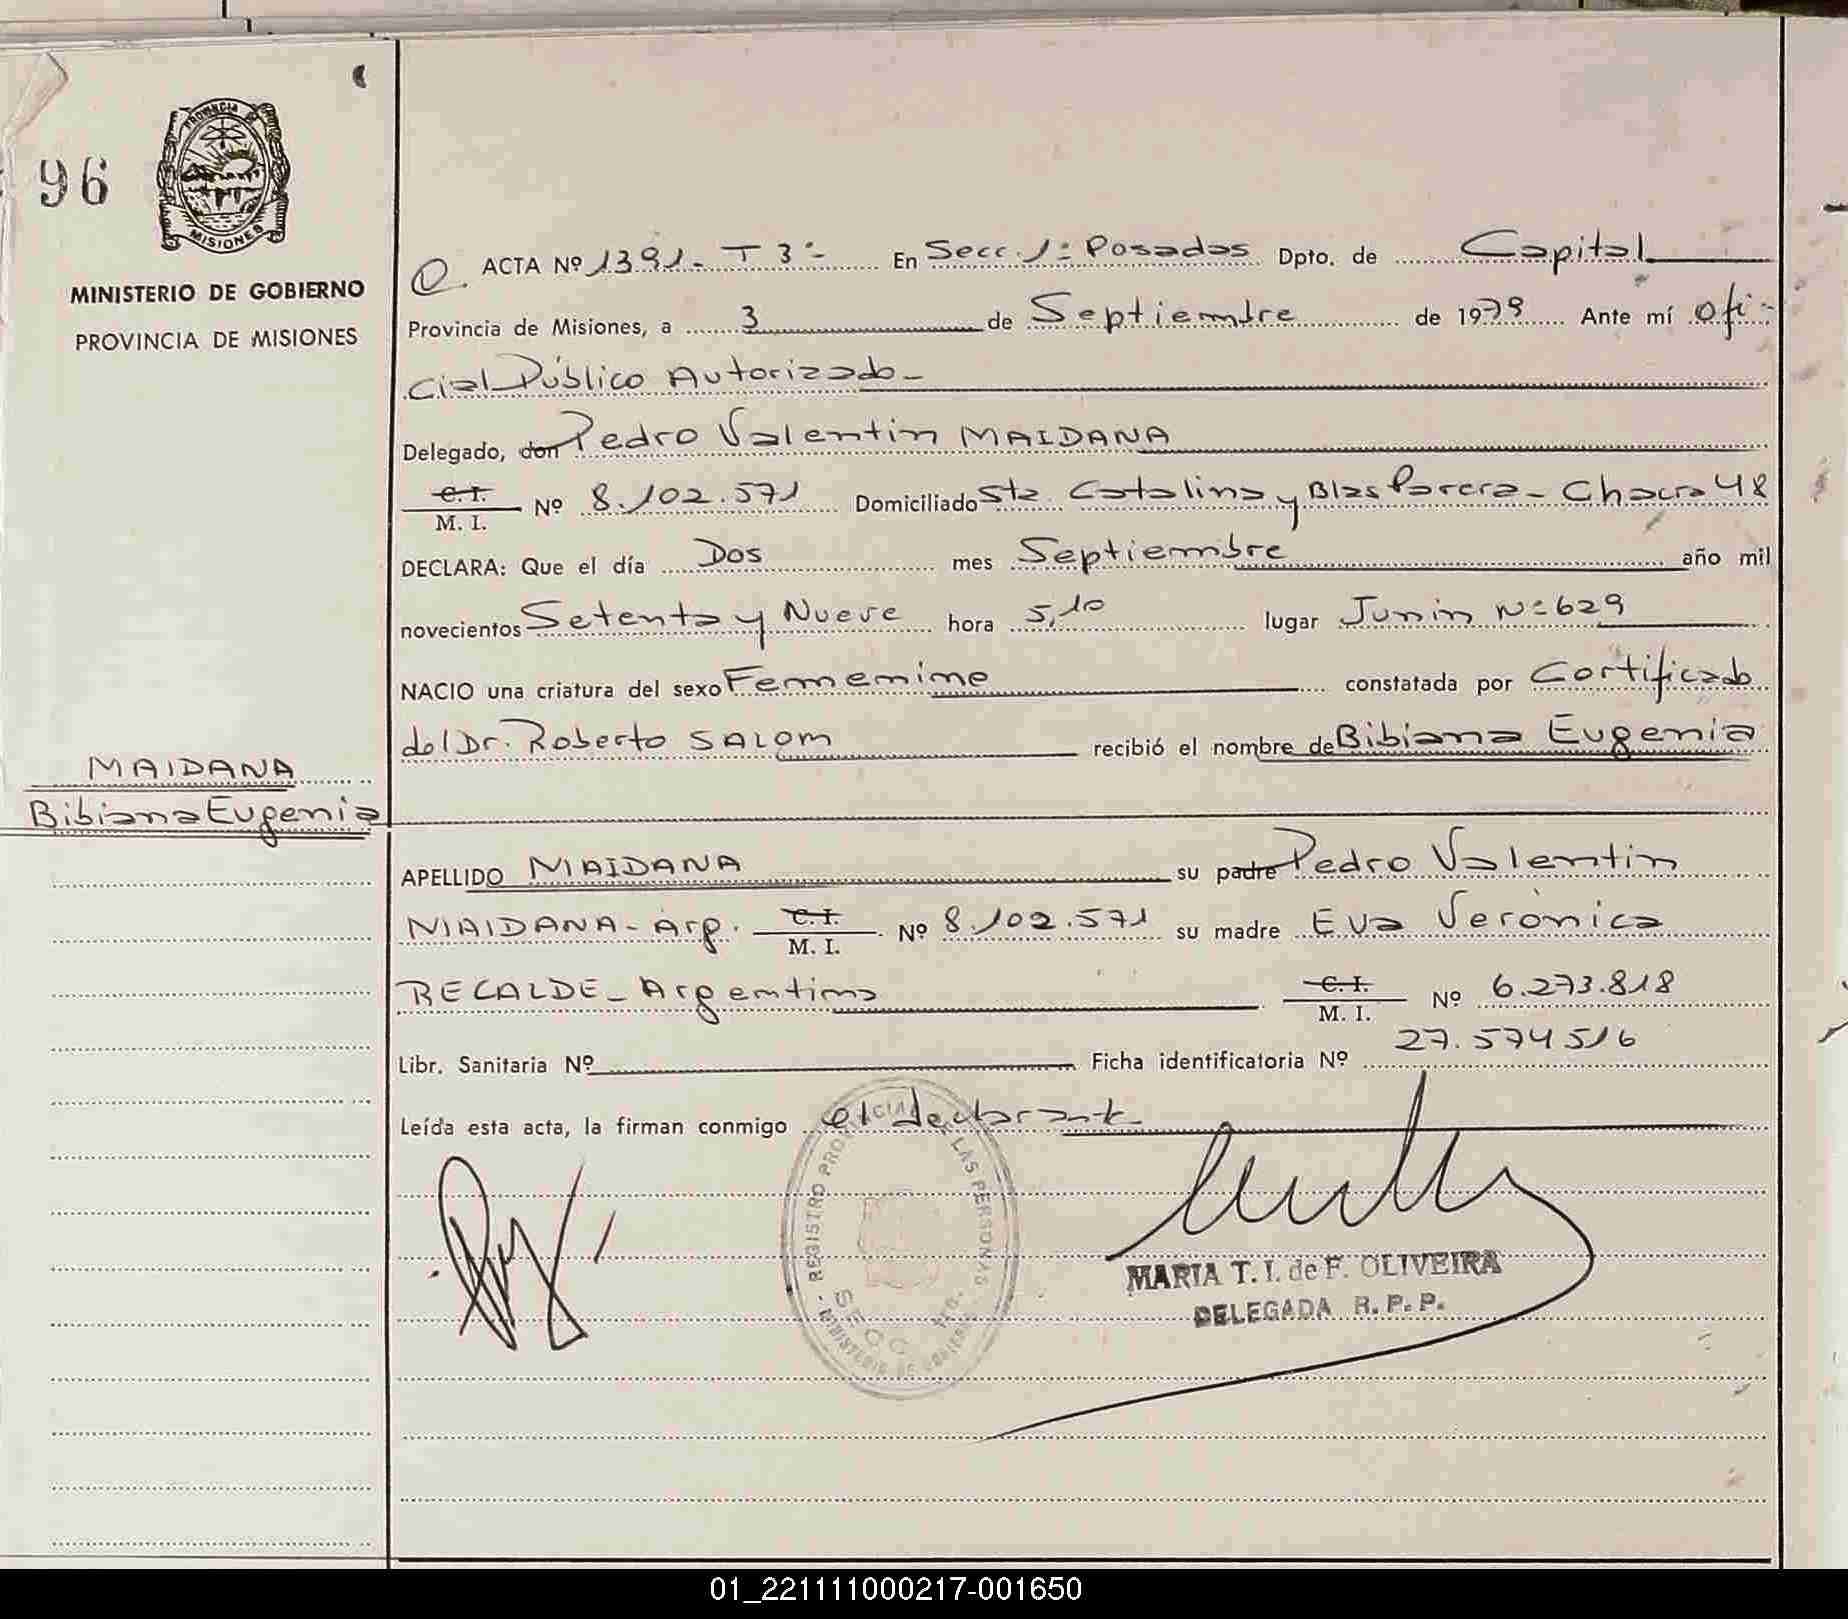 96
PROVINCIA DE
MISIONES
MINISTERIO DE GOBIERNO
PROVINCIA DE MISIONES
MAIDANA
Bibiana Eugenia
ACTA Nº 1391 - T 3º - En Secc. 1º Posadas Dpto. de Capital
Provincia de Misiones, a 3 de Septiembre de 1979 Ante mí Ofi-
cial Público Autorizado -
Delegado, don Pedro Valentin MAIDANA
C.I. / M. I. Nº 8.102.571 Domiciliado Sta. Catalina y Blas Parera - Chacra 48
DECLARA: Que el día Dos mes Septiembre año mil
novecientos Setenta y Nueve hora 5,10 lugar Junin Nº 629
NACIO una criatura del sexo Femenino constatada por Certificado
del Dr. Roberto SALOM recibió el nombre de Bibiana Eugenia
APELLIDO MAIDANA su padre Pedro Valentin
MAIDANA - Arg. C.I. / M. I. Nº 8.102.571 su madre Eva Verónica
RECALDE - Argentina C.I. / M. I. Nº 6.273.818
Libr. Sanitaria Nº Ficha identificatoria Nº 27.574516
Leída esta acta, la firman conmigo el declarante
REGISTRO PROVINCIAL DE LAS PERSONAS
SECC.
MINISTERIO DE GOBIERNO
MARIA T. I. de F. OLIVEIRA
DELEGADA R. P. P.
01_221111000217-001650